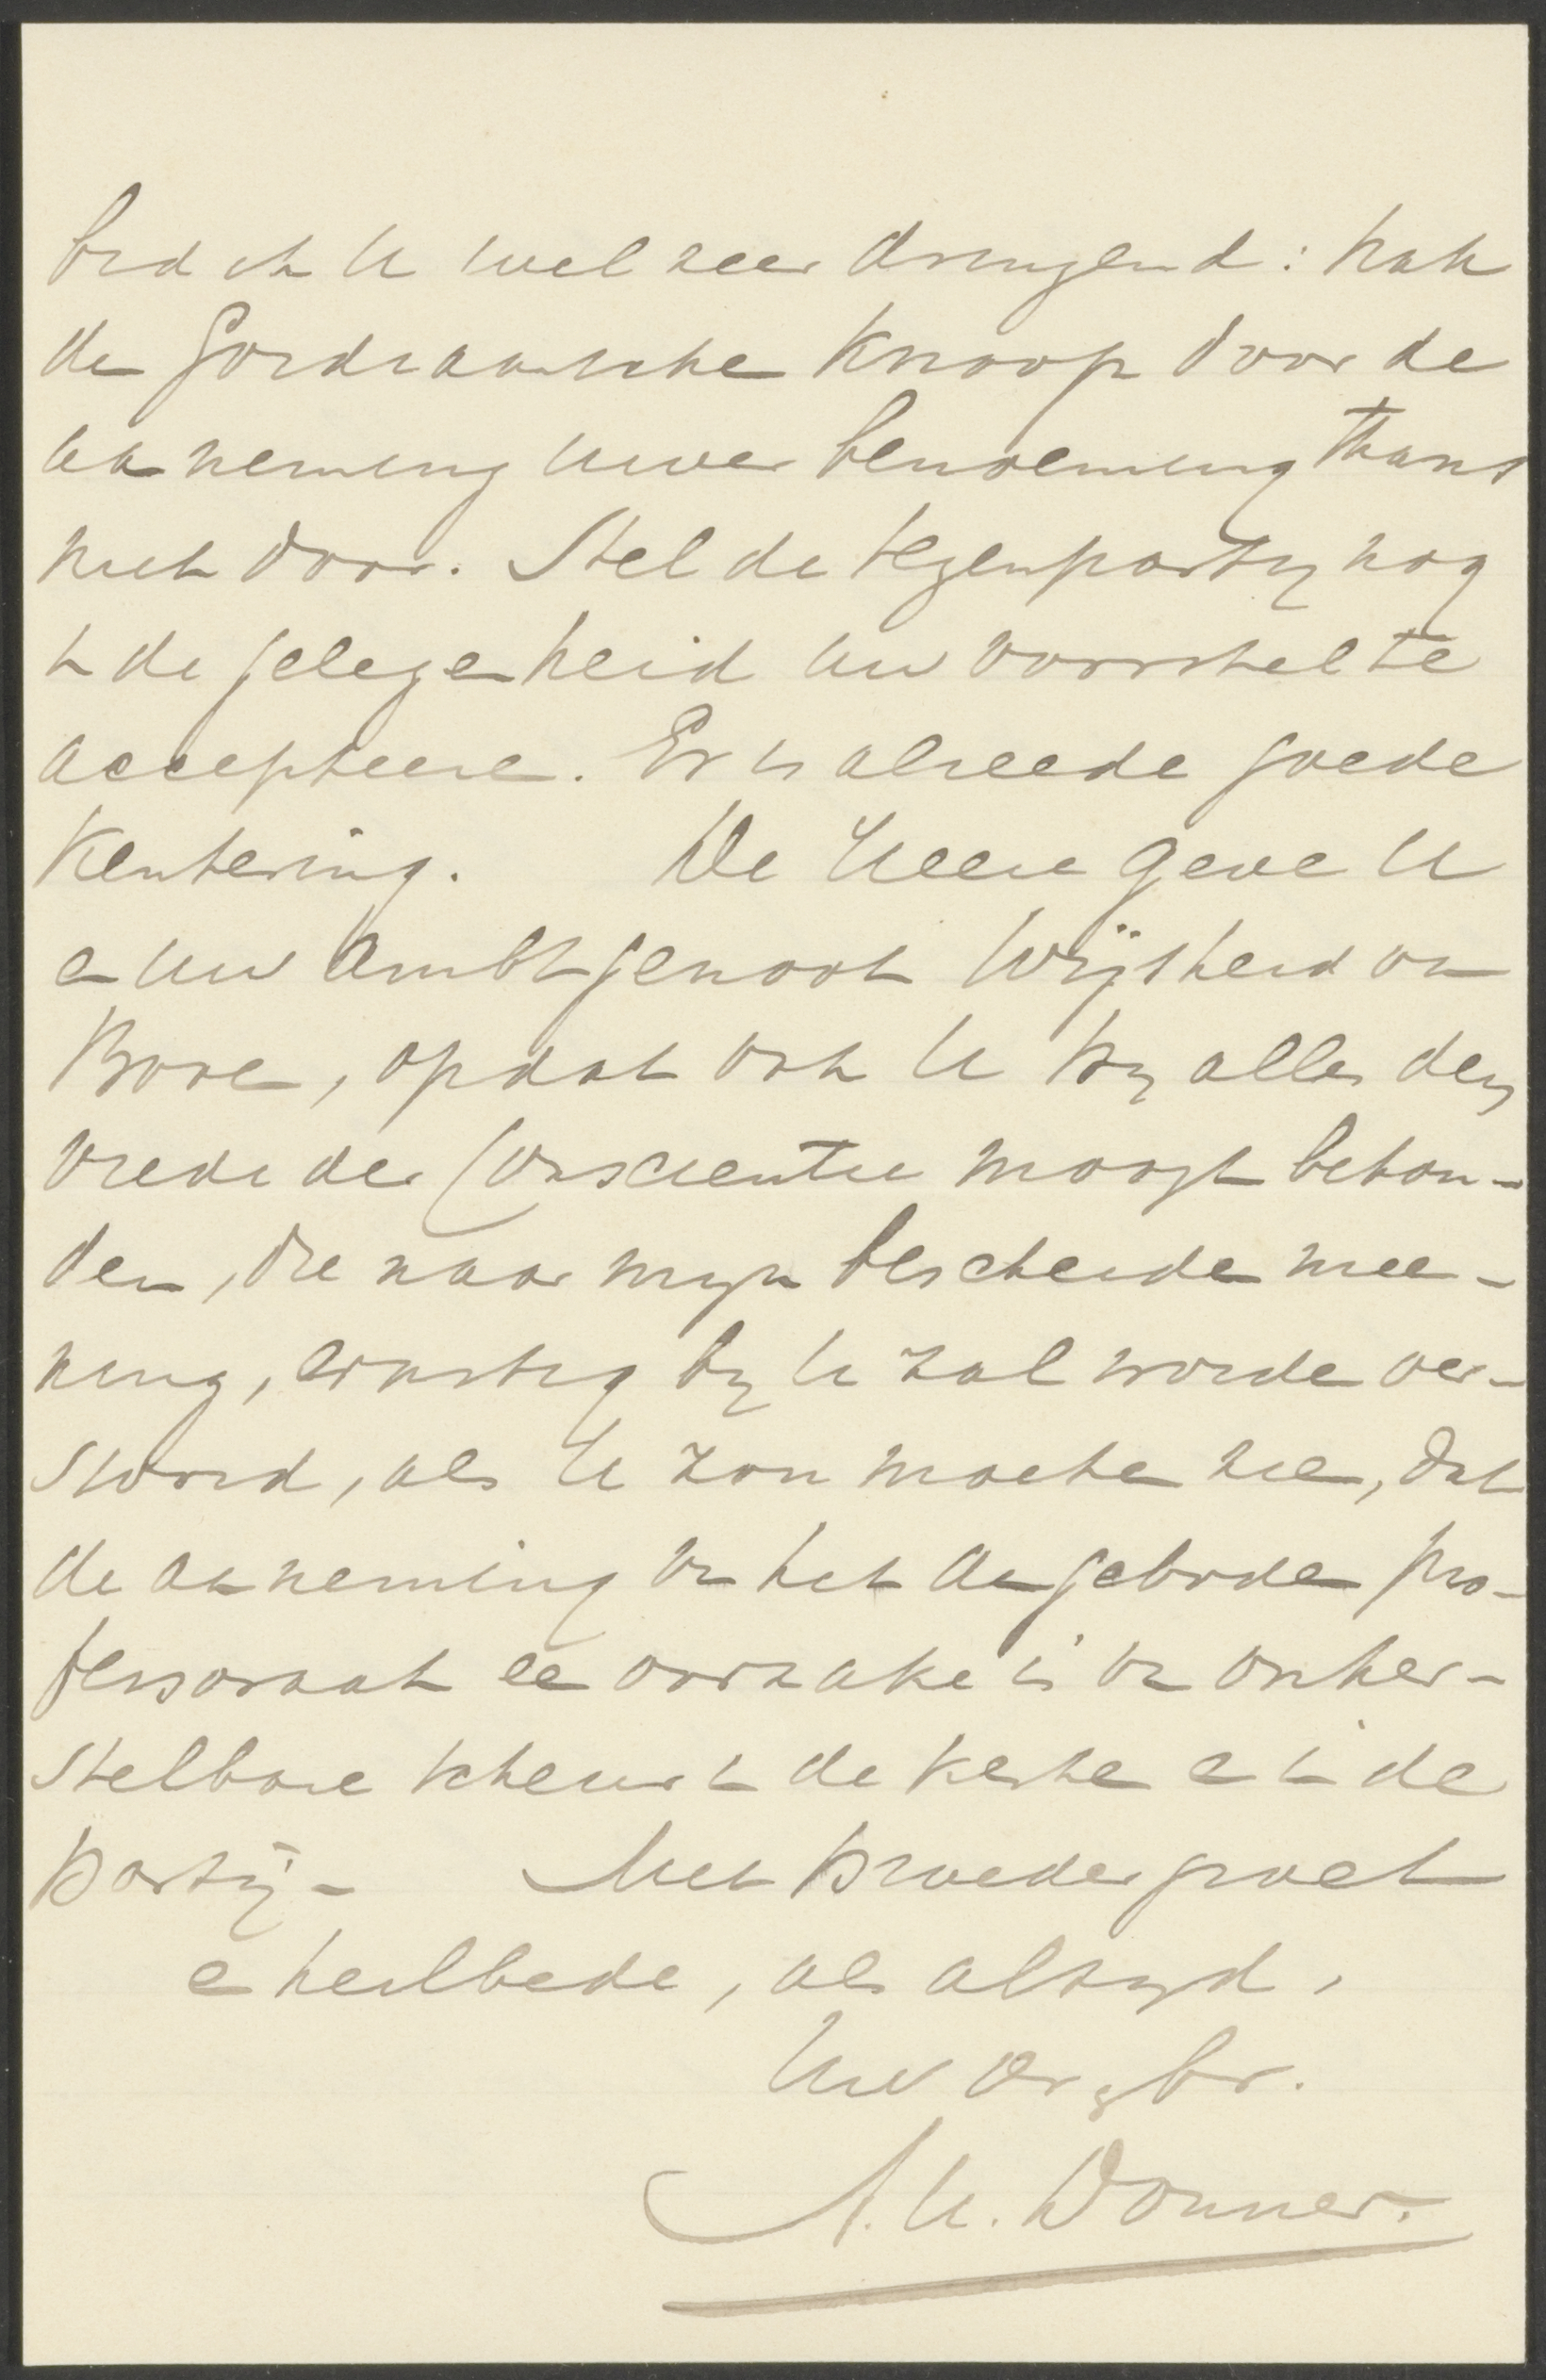 bid ik U wel zeer dringend: hak
de Gordiaansche Knoop door de
aanneming uwer benoeming thans
niet door. Stel de tegenpartij nog
in de gelegenheid uw voorstel te
accepteeren. Er is alreede goede
Kentering. De Heere geve U
en uw Ambtgenoot Wijsheid van
Boven, opdat ook U bij alles den
vrede der Conscientie moogt behou-
den, die naar mijn bescheiden mee-
ning, ernstig bij U zal worden ver-
stoord, als U zou moeten zien, dat
de aanneming van het aangeboden pro-
fessoraat een oorzake is van onher-
stelbare scheur in de Kerken en in de
partij - Met Broedergroet
en heilbede, als altijd,
Uw dv. br.
A. H. Donner.